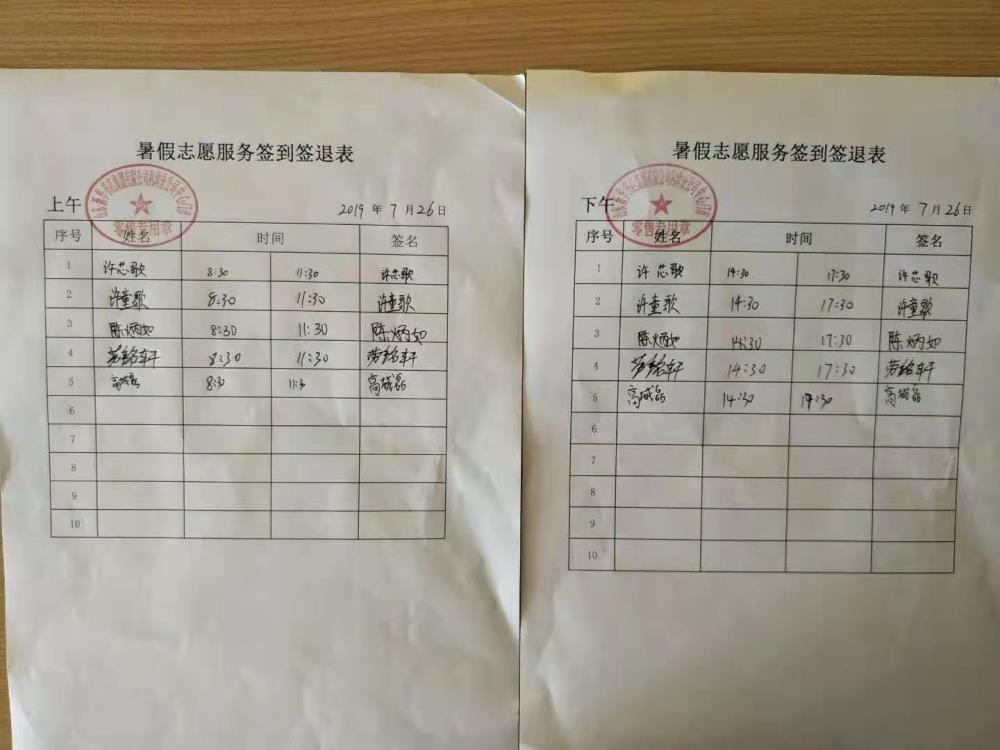 暑假志愿服务签到签退表
上午 2019年7月26日
零售专用章
序号 姓名 时间 签名
1 许芯歌 8:30 11:30 许芯歌
2 许童歌 8:30 11:30 许童歌
3 陈炳如 8:30 11:30 陈炳如
4 劳铭轩 8:30 11:30 劳铭轩
5 8:30 11:30 高成磊
6
7
8
9
10
暑假志愿服务签到签退表
下午 2019年7月26日
零售专用章
序号 姓名 时间 签名
1 许芯歌 14:30 17:30 许芯歌
2 许童歌 14:30 17:30 许童歌
3 陈炳如 14:30 17:30 陈炳如
4 劳铭轩 14:30 17:30 劳铭轩
5 高成磊 14:30 17:30 高成磊
6
7
8
9
10